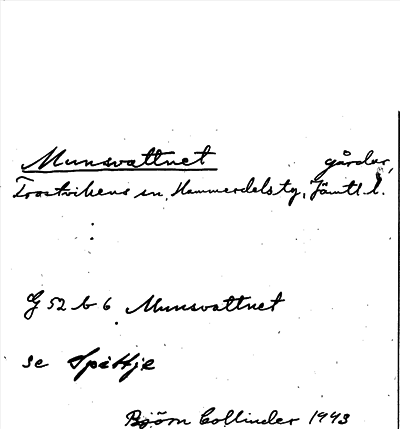 Munsvattnet gårdar,
Trostvikens sn, Hammerdals tg, Jämtl l.
G 52 b 6 Munsvattnet
se Spittje
Björn Collinder 1943